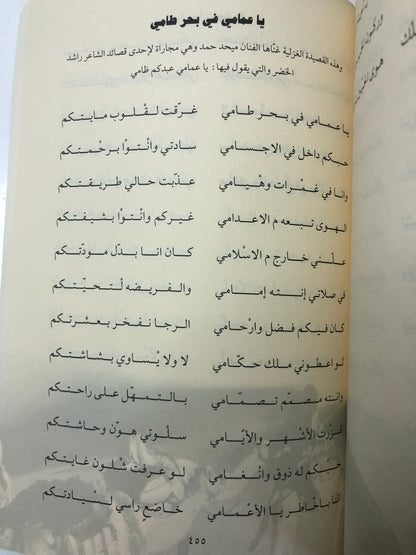 يا عمامي في بحر طامي
وهذه القصيدة الغزلية غنّاها الفنان ميحد حمد وهي مجاراة لإحدى قصائد الشاعر راشد
الخضر والتي يقول فيها: يا عمامي عبدكم ظامي
يا عمامي في بحر طامي غرّقت لقْلوب مايتكم
حبكم داخل في الاجسامي سادتي وانتوا برحْمتكم
وانا في غمْرات وهْيامي عذّبت حالي طريقتكم
الهوى تبعه م الاعدامي غيركم وانتوا بشيفتكم
علّني خارج م الاسْلامي كان انا بدّل مودّتكم
في صلاتي إنته إمامي والفريضه لْتحيّتكم
كان فيكم فضل وارْحامي الرجا نفخر بعشرتكم
لو اعطوني ملك حكّامي لا ولا يْساوي بشاشتكم
وانته مصمّم تصمّامي بالتمهّل على راحتكم
قوّرت الأشهر والأيّامي سلْوتي هوّن وحاشتكم
حبّكم له ذوق وانْغامي لو عرفت شْلون غايتكم
بالخاطر يا الأعْمامي خاضعٍ راسي لسْيادتكم
٤٥٥